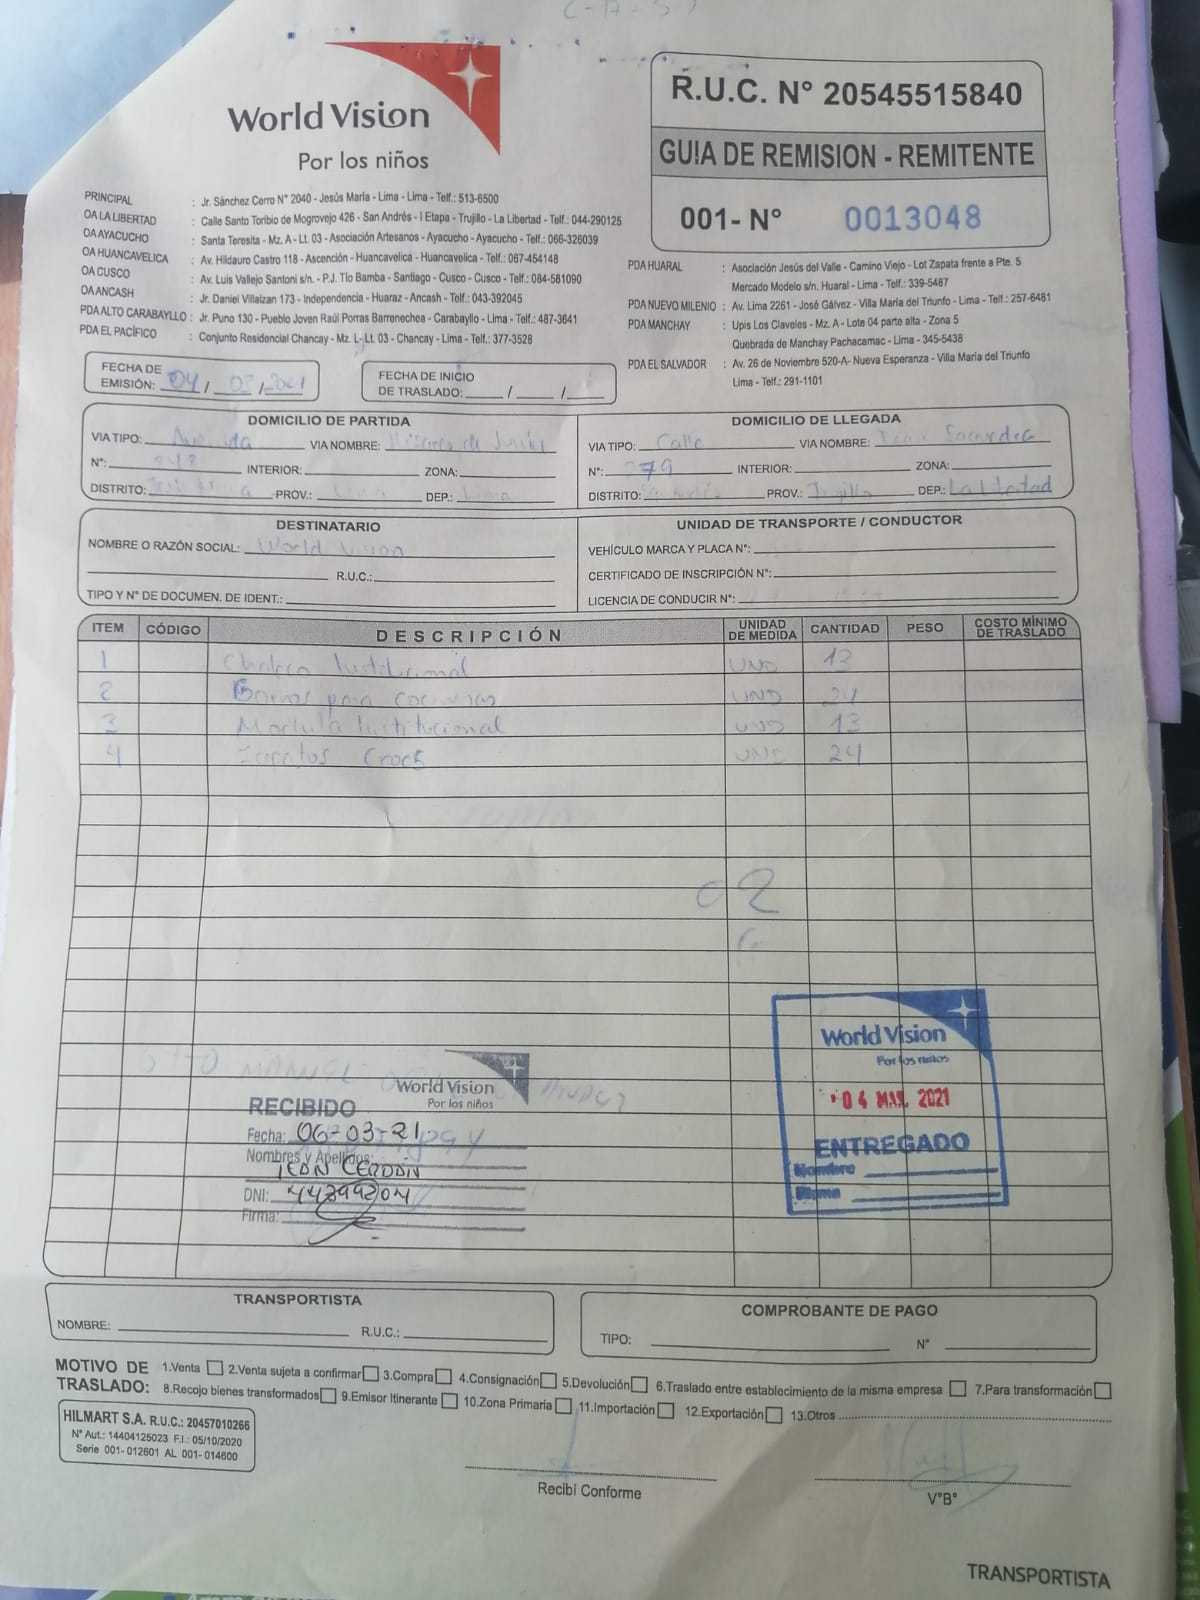 World Vision
Por los niños
R.U.C. N° 20545515840
GUIA DE REMISION - REMITENTE
001- N° 0013048
PRINCIPAL : Jr. Sánchez Cerro N° 2040 - Jesús María - Lima - Lima - Telf.: 513-6500
OA LA LIBERTAD : Calle Santo Toribio de Mogrovejo 426 - San Andrés - I Etapa - Trujillo - La Libertad - Telf.: 044-290125
OA AYACUCHO : Santa Teresita - Mz. A - Lt. 03 - Asociación Artesanos - Ayacucho - Ayacucho - Telf.: 066-326039
OA HUANCAVELICA : Av. Hildauro Castro 118 - Ascención - Huancavelica - Huancavelica - Telf.: 067-454148
OA CUSCO : Av. Luis Vallejo Santoni s/n. - P.J. Tío Bamba - Santiago - Cusco - Cusco - Telf.: 084-581090
OA ANCASH : Jr. Daniel Villaizan 173 - Independencia - Huaraz - Ancash - Telf.: 043-392045
PDA ALTO CARABAYLLO : Jr. Puno 130 - Pueblo Joven Raúl Porras Barrenechea - Carabayllo - Lima - Telf.: 487-3641
PDA EL PACÍFICO : Conjunto Residencial Chancay - Mz. L- Lt. 03 - Chancay - Lima - Telf.: 377-3528
PDA HUARAL : Asociación Jesús del Valle - Camino Viejo - Lot Zapata frente a Pte. 5
Mercado Modelo s/n. Huaral - Lima - Telf.: 339-5487
PDA NUEVO MILENIO : Av. Lima 2261 - José Gálvez - Villa María del Triunfo - Lima - Telf.: 257-6481
PDA MANCHAY : Upis Los Claveles - Mz. A - Lote 04 parte alta - Zona 5
Quebrada de Manchay Pachacamac - Lima - 345-5438
PDA EL SALVADOR : Av. 26 de Noviembre 520-A- Nueva Esperanza - Villa María del Triunfo
Lima - Telf.: 291-1101
FECHA DE
EMISIÓN: 04 / 03 / 2021
FECHA DE INICIO
DE TRASLADO: / /
DOMICILIO DE PARTIDA
VIA TIPO: Avenida VIA NOMBRE: de Junín
N°: INTERIOR: ZONA:
DISTRITO: PROV.: Lima DEP.: Lima
DOMICILIO DE LLEGADA
VIA TIPO: Calle VIA NOMBRE:
N°: 279 INTERIOR: ZONA:
DISTRITO: PROV.: Trujillo DEP.: La Libertad
DESTINATARIO
NOMBRE O RAZÓN SOCIAL: World Vision
R.U.C.:
TIPO Y N° DE DOCUMEN. DE IDENT.:
UNIDAD DE TRANSPORTE / CONDUCTOR
VEHÍCULO MARCA Y PLACA N°:
CERTIFICADO DE INSCRIPCIÓN N°:
LICENCIA DE CONDUCIR N°:
ITEM CÓDIGO DESCRIPCIÓN UNIDAD DE MEDIDA CANTIDAD PESO COSTO MÍNIMO DE TRASLADO
1 Chaleco Institucional UND 13
2 para UND 24
3 Institucional UND 13
4 Zapatos Crocs UND 24
02
World Vision
Por los niños
RECIBIDO
Fecha: 06-03-21
Nombres y Apellidos:
LEON CERDÁN
DNI:
Firma:
World Vision
Por los niños
04 MAR. 2021
ENTREGADO
Nombre
Firma
TRANSPORTISTA
NOMBRE: R.U.C.:
COMPROBANTE DE PAGO
TIPO: N°
MOTIVO DE TRASLADO: 1.Venta 2.Venta sujeta a confirmar 3.Compra 4.Consignación 5.Devolución 6.Traslado entre establecimiento de la misma empresa 7.Para transformación
8.Recojo bienes transformados 9.Emisor Itinerante 10.Zona Primaria 11.Importación 12.Exportación 13.Otros
HILMART S.A. R.U.C.: 20457010266
N° Aut.: 14404125023 F.I.: 05/10/2020
Serie 001- 012601 AL 001- 014600
Recibí Conforme
V°B°
TRANSPORTISTA